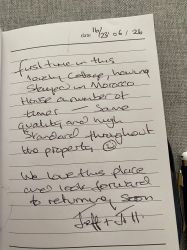 DATE 23/06/26
first time in this
lovely Cottage, having
Stayed in Morocco
House a number of
times — Same
quality and high
Standard throughout
the property ☺
We love this place
and look forward
to returning soon
Jeff + Jill